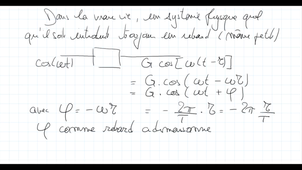 Dans la vraie vie, un système physique quel
qu'il soit introduit toujours un retard (même petit)
cos(ωt) G cos[ω(t-τ)]
= G. cos(ωt - ωτ)
= G. cos(ωt + φ)
avec φ = -ωτ = - 2π/T . τ = -2π τ/T
φ comme retard adimensionné